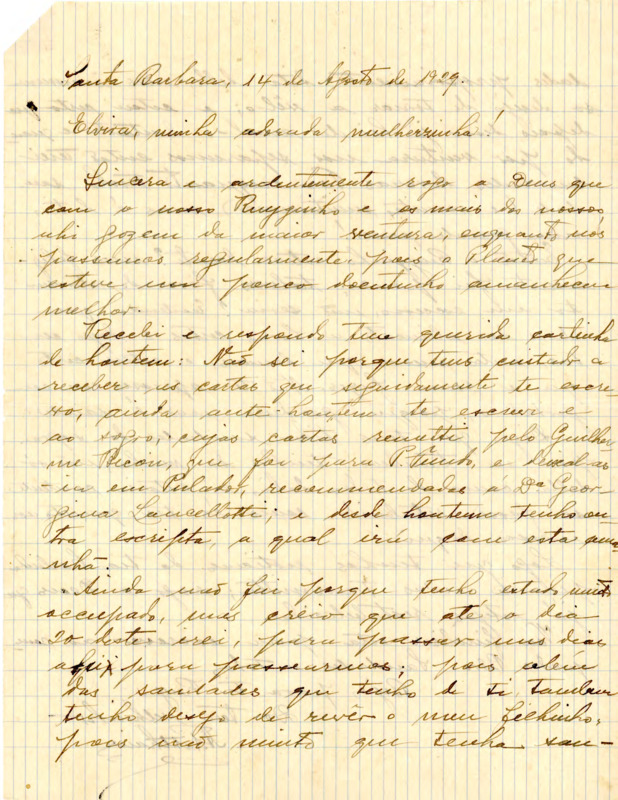 Santa Barbara, 14 de Agosto de 1929.
Elvira, minha adorada mulherzinha!
Sincera e ardentemente rogo a Deus que
com o nosso Ruyginho e os mais dos nossos
ahi gozem da maior ventura, enquanto nós
passamos regularmente, pois o que
esteve um pouco doentinho amanheceu
melhor.
Recebi e respondo tua querida cartinha
de hontem: Não sei porque tens custado a
receber as cartas que siguidamente te escre-
vo, ainda ante-hontem te escrevi e
ao sogro, cujas cartas remetti pelo Guilher-
me, que foi para P. Fundo, e deixal-as-
ia em Pulador, recommendadas á Da Geor-
gina Lancellotti; e desde hontem tenho ou-
tra escripta, a qual irá com esta ama-
nhã.
Ainda não fui porque tenho estado muito
occupado, mas creio que até o dia
20 deste irei, para passar uns dias
ahi para passearmos; pois além
das saudades que tenho de ti, tambem
tenho desejo de revêr o meu filhinho,
pois não minto que tenha sau-